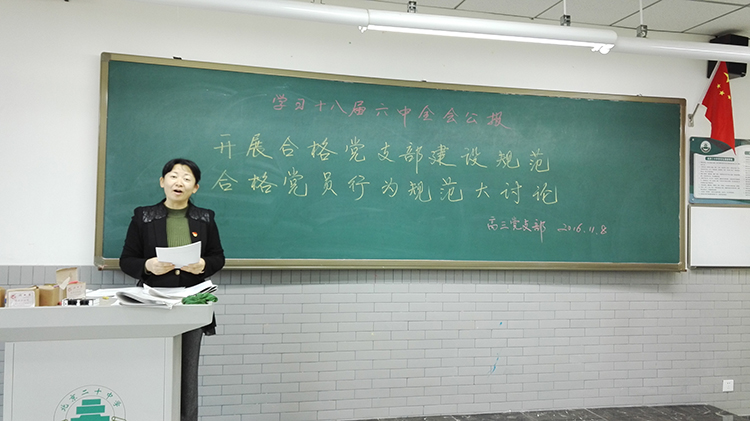 学习十八届六中全会公报
开展合格党支部建设规范
合格党员行为规范大讨论
高三党支部 2016.11.8
北京二十中学